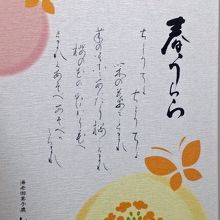 春うらら
ちょうちょう
ちょうちょう
菜の葉にとまれ
菜の葉にあいたら桜にとまれ
桜の花の花から花へ
とまれよあそべあそべよとまれ